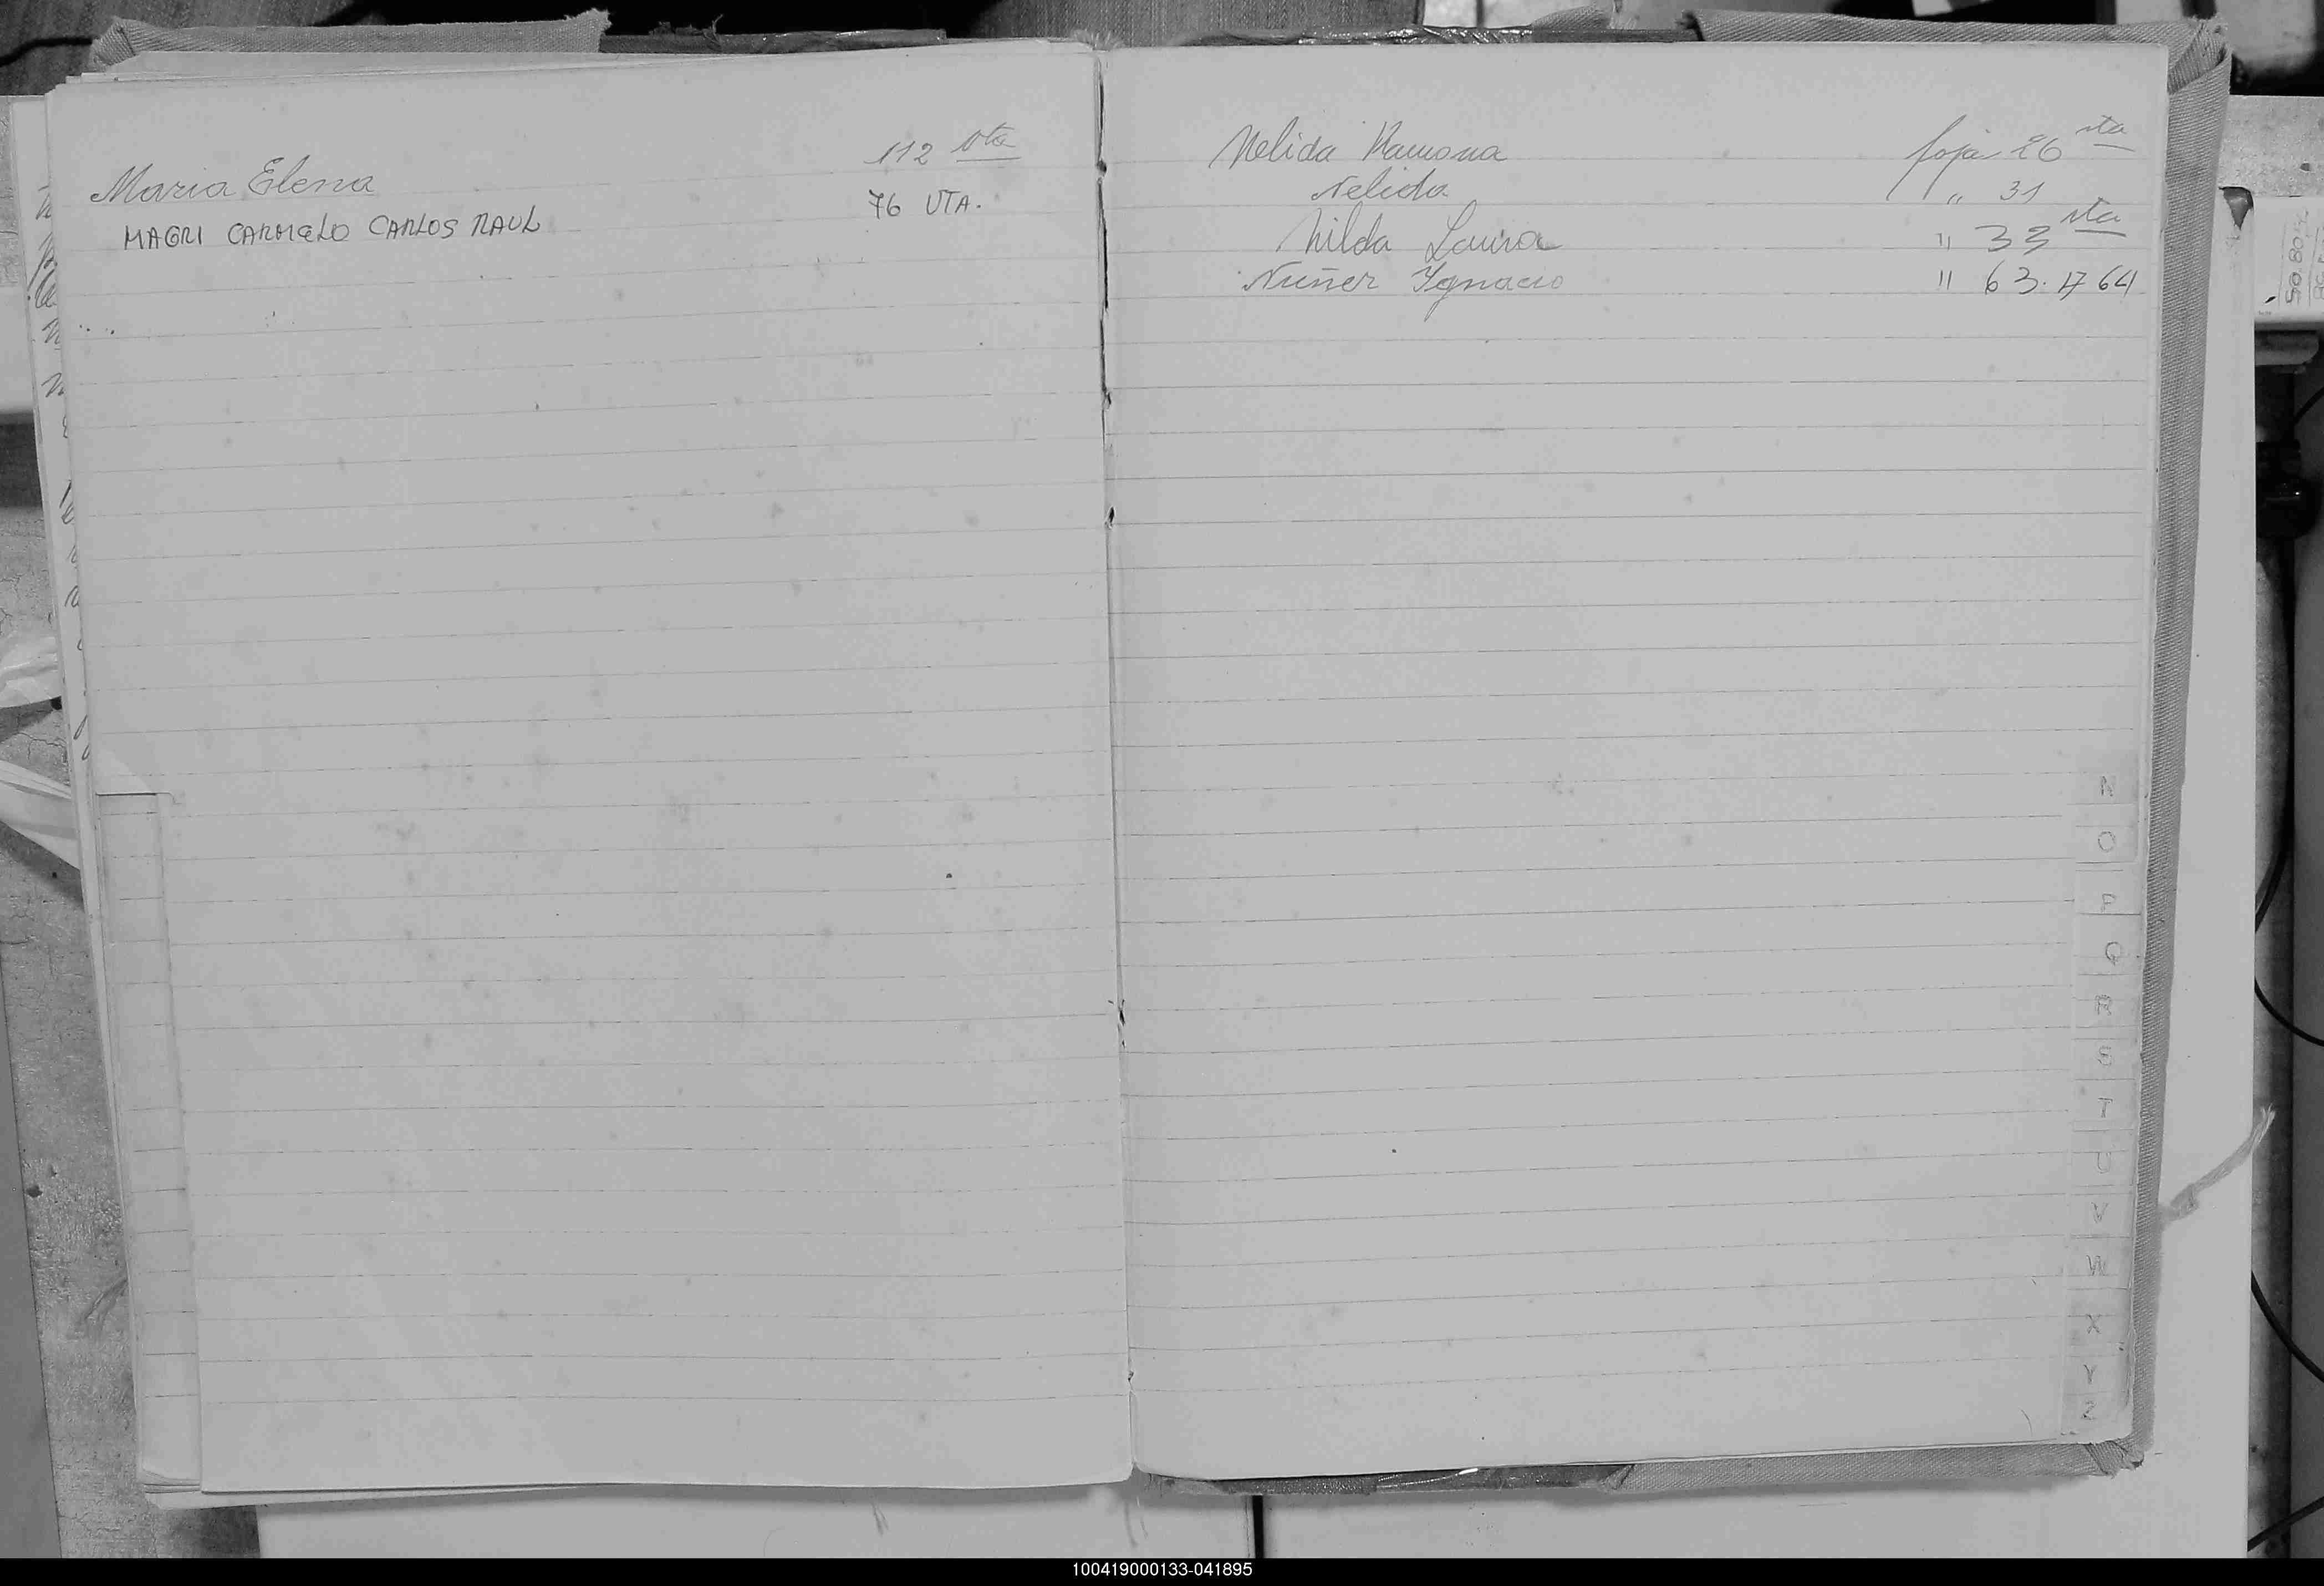 Maria Elena 112 vta
MAGRI CARMELO CARLOS RAUL 76 VTA.
Nelida Ramona foja 26 vta
Nelida " 31
Nilda Laura " 33 vta
Nuñez Ygnacio " 63. 64
N
O
P
Q
R
S
T
U
V
W
X
Y
Z
100419000133-041895